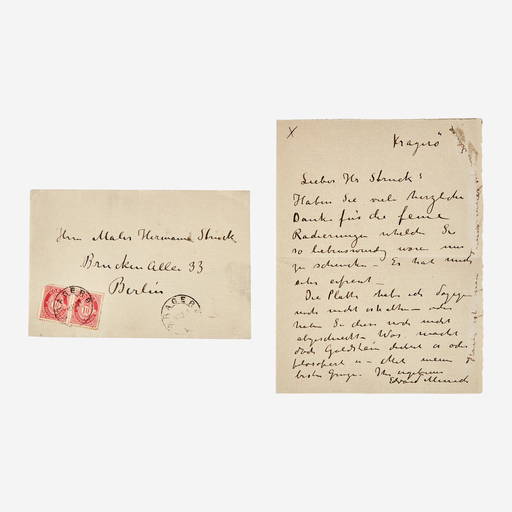 Herrn Maler Hermann Struck
Brücken Allee 33
Berlin
KRAGERØ
KRAGERØ
10
X
Kragerö
Lieber Hr Struck!
Haben Sie viele herzliche
Dank für die feine
Radierungen welche Sie
so liebenswürdig waren mir
zu schenken – Es hat mich
sehr erfreut –
Die Platte habe ich dagegen
noch nicht erhalten – oder
haben Sie diese noch nicht
abgedruckt – Was macht
doch Goldstein dichtet er oder
filosofiert er – Mit meinen
besten Grüssen Ihr ergebener
Edvard Munch